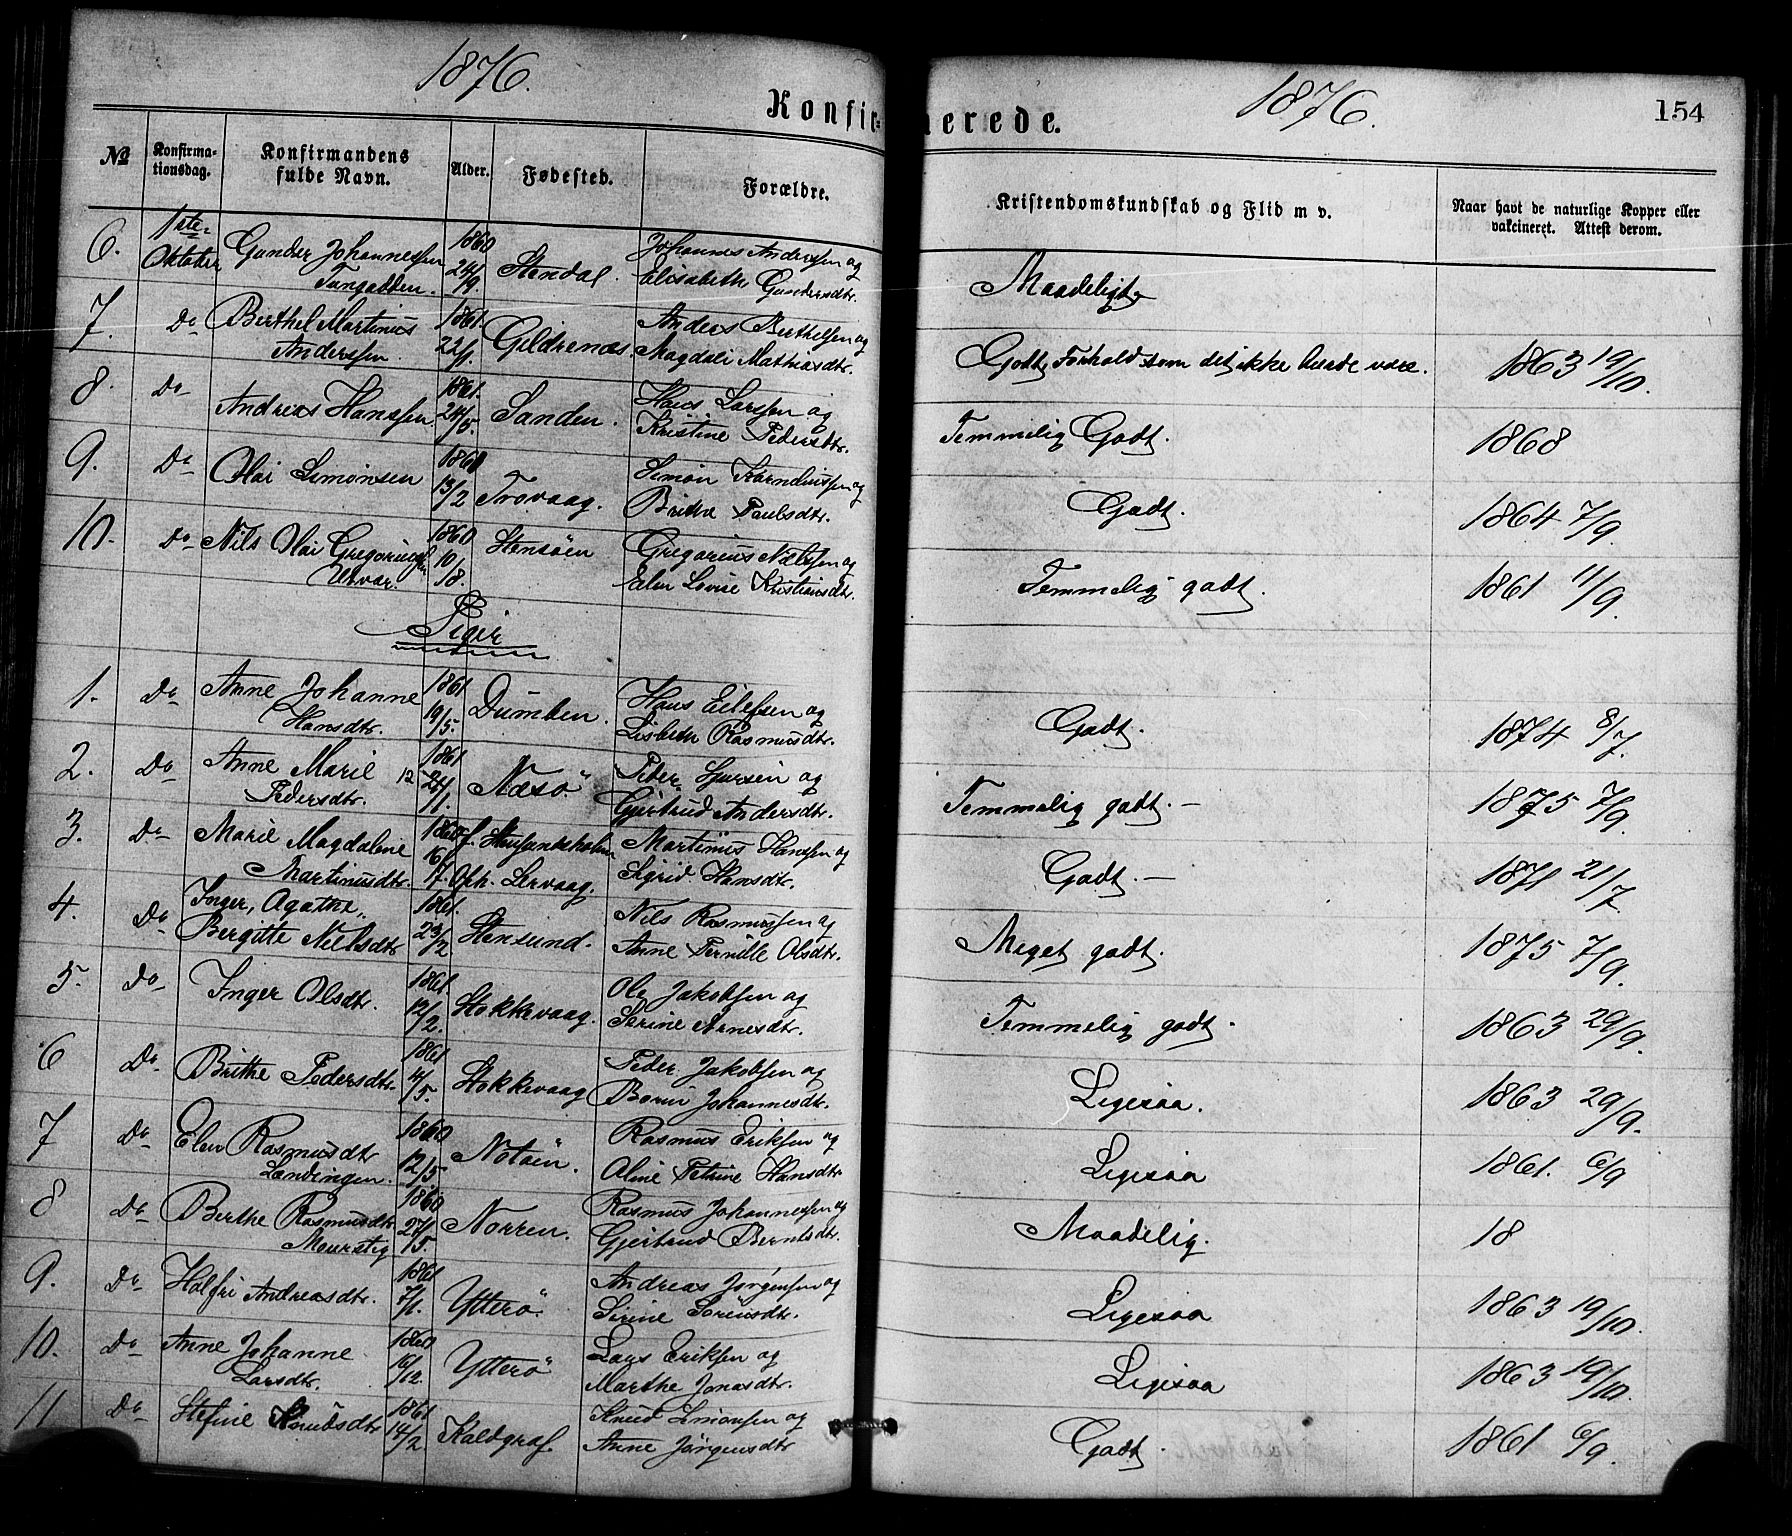 1876.
1876.
154
Konfir=
merede.
No
Konfirma-
tionsdag.
Konfirmandens
fulde Navn.
Alder.
Fødested.
Forældre.
Kristendomskundskab og Flid m v.
Naar havt de naturlige Kopper eller
vakcineret. Attest derom.
6. 1ste Oktober Gunder Johannessen 1860 24/9. Stendal. Johannes Anderssen og
Elisabeth Gundersdtr. Maadeligt
7. Do Berthel Martinus 1861 22/1. Gildrenæs Anders Berthelsen og
Anderssen. Magdali Mathiasdtr. Godt, Forhold som det ikke burde være. 1863 19/10.
8. Do Andreas Hanssen 1861. 24/5. Sanden. Hans Larssen og
Kristine Pedersdtr. Temmelig Godt. 1868
9. Do Olai Simonsen 1860 13/2 Trovaag. Simon Korneliussen og
Brithe Paulsdtr. Godt. 1864 7/9.
10. Do Nils Olai Gregoriussen 1860 10/18. Stensöen Gregorius Nilssen og
Utvær. Elen Lovise Kristiansdtr. Temmelig godt. 1861 11/9.
Piger
1. Do Anne Johanne 1861 19/5. Dumben. Hans Eilefsen og
Hansdtr. Lisbeth Rasmusdtr. Godt. 1874 8/7.
2. Do Anne Marie 1861 24/1. Næsö Peder Sjursen og
Pedersdtr. Gjertrud Andersdtr. Temmelig godt. — 1875 7/9.
3. Do Marie Magdalene 1860 16/ f. Martinus Hanssen og
Martinusdtr. 17. Oph. Lervaag. Sigrid Hansdtr. Godt. — 1871 21/7.
4. Inger, Agathe, 1861. Nils Rasmussen og
Do Bergitte Nilsdtr 23/2 Stensund. Anne Pernille Olsdtr. Meget godt. 1875 7/9.
5. Do Inger Olsdtr. 1861 12/2. Stokkevaag. Ole Jakobsen og
Serine Arnesdtr. Temmelig godt. 1863 29/9.
6 Do Brithe Pedersdtr. 1861 4/5. Stokkevaag Peder Jakobsen og
Borni Johannesdtr. Ligesaa. 1863 29/9.
7 Do Elen Rasmusdtr 1860 12/5 Notöen. Rasmus Eriksen og
Landingen. Oline Petrine Hansdtr Ligesaa 1861. 6/9
8 Do Berthe Rasmusdtr 1860 27/5. Norren. Rasmus Johannessen og
Meurstig Gjertrud Berntsdtr. Maadelig. 18
9. Do Halfri Andreasdtr. 1861 7/1. Ytterö Andreas Jørgensen og
Sirine Sörensdtr. Ligesaa 1863 19/10.
10. Do Anne Johanne 1860 16/12 Ytterö Lars Eriksen og
Larsdtr. Marthe Jonasdtr. Ligesaa 1863 19/10.
11 Do Stefine Knudsdtr 1861 14/2 Kaldgraf. Knud Simonsen og
Anne Jörgensdtr Godt. 1861 6/9.